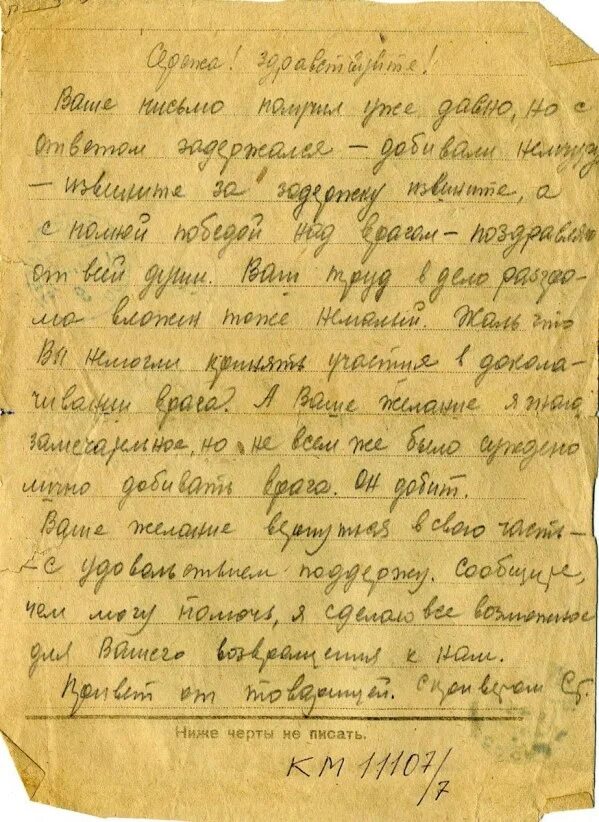 Сережа! Здравствуйте!
Ваше письмо получил уже давно, но с
ответом задержался – добивали немчуру
– извините за задержку извините, а
с полной победой над врагом – поздравляю
от всей души. Ваш труд в дело разгро-
ма вложен тоже немалый. Жаль что
Вы немогли принять участия в докола-
чивании врага. А Ваше желание я знаю
замечательное, но не всем же было суждено
лично добивать врага. Он добит.
Ваше желание вернуться в свою часть –
– с удовольствием поддержу. Сообщите,
чем могу помочь, я сделаю все возможное
для Вашего возвращения к нам.
Привет от товарищей. С приветом
Ниже черты не писать.
КМ 11107/7